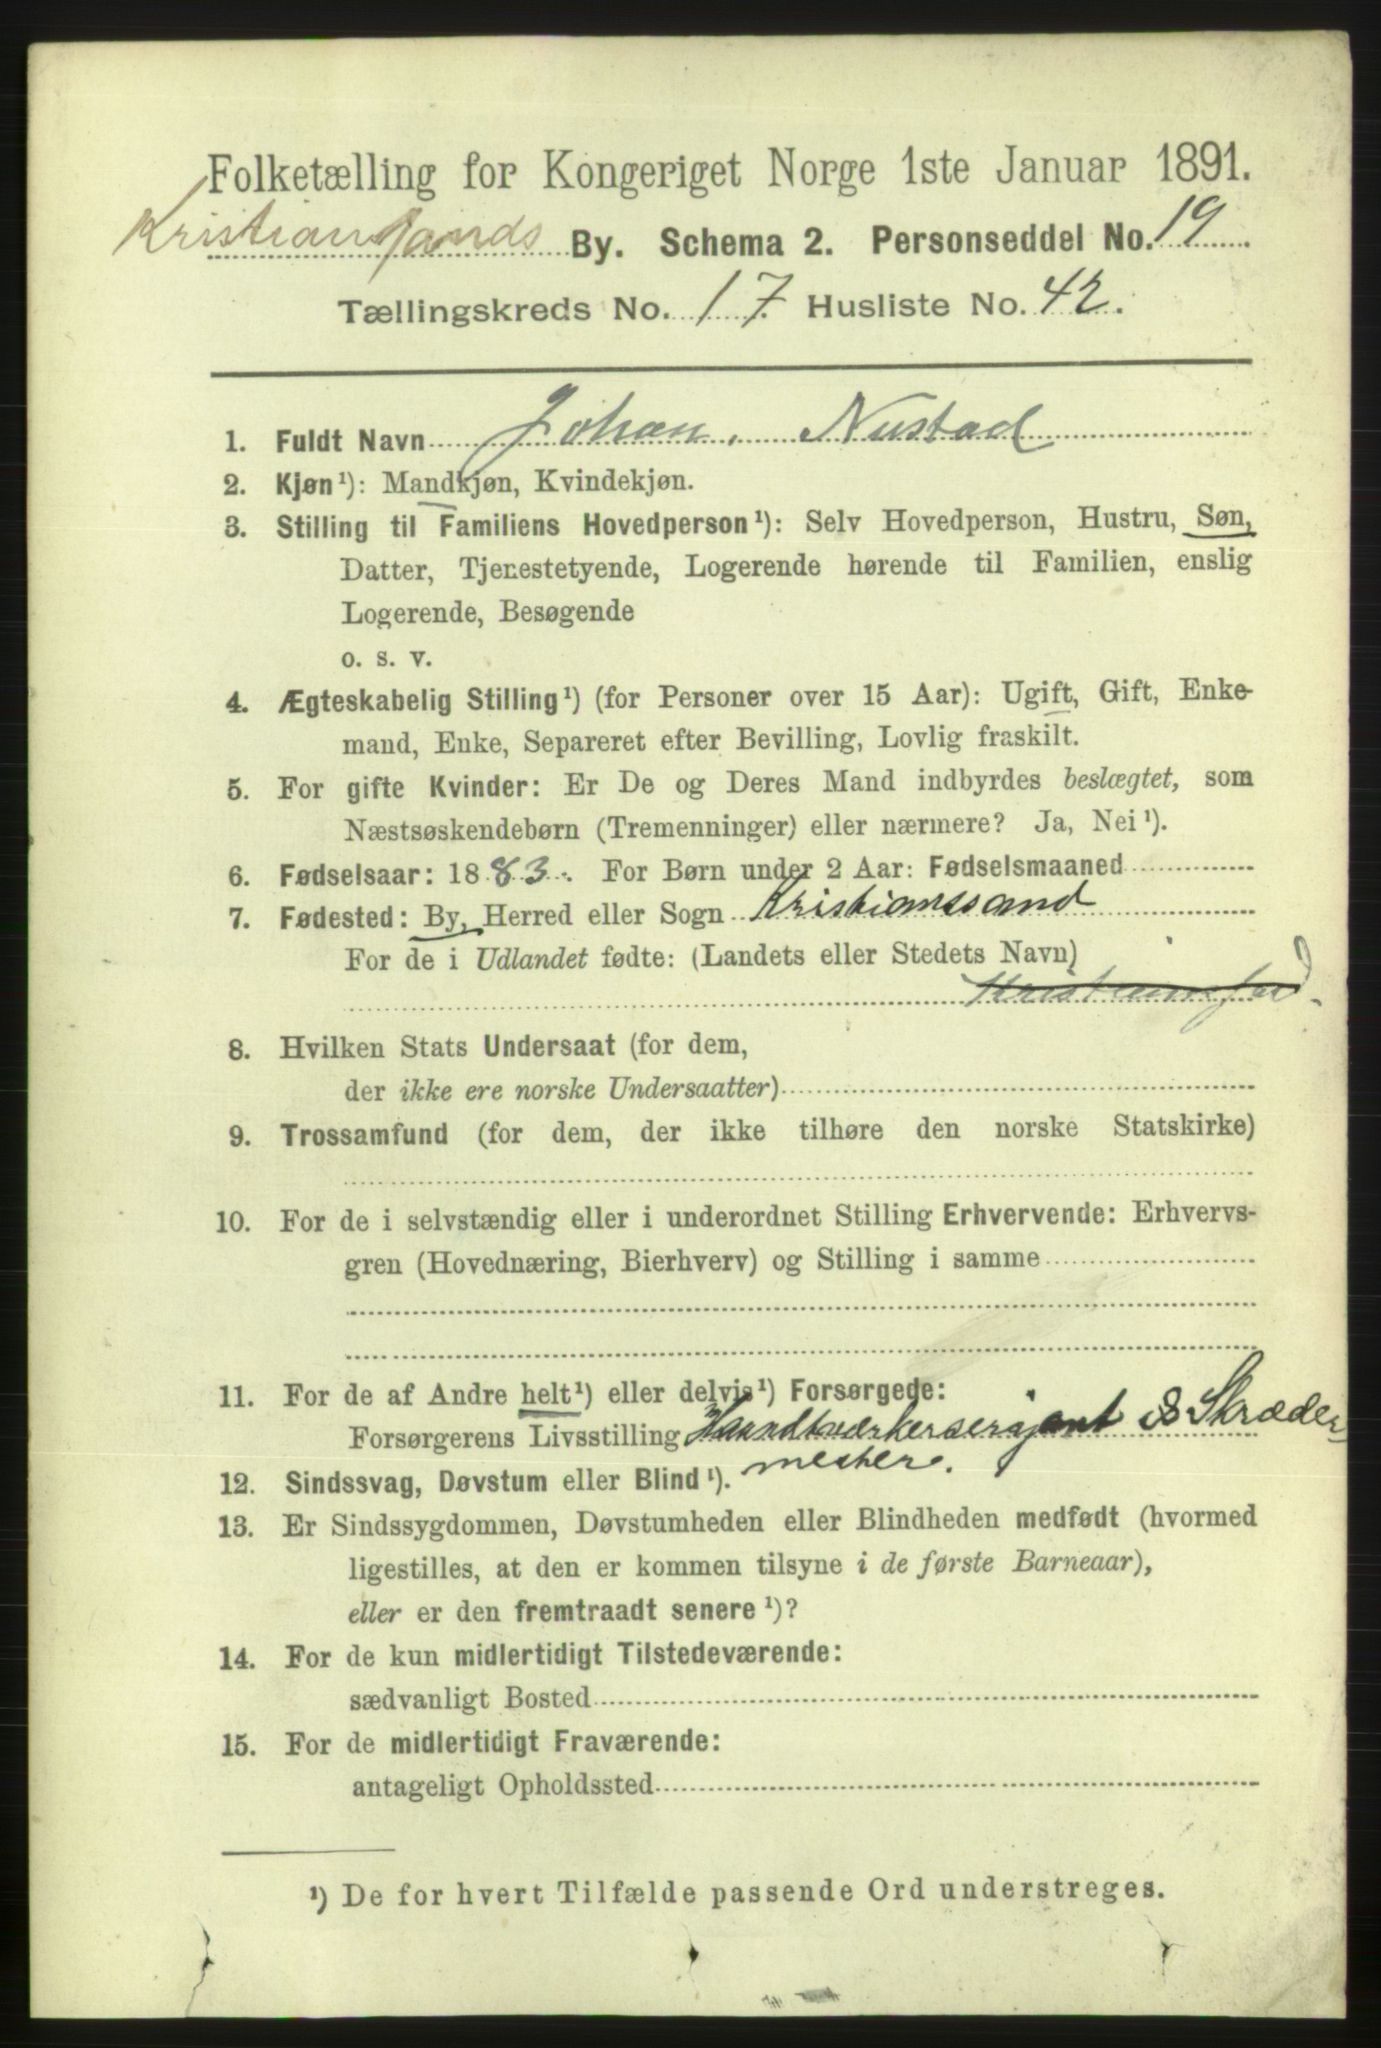 Folketælling for Kongeriget Norge 1ste Januar 1891.
Kristianssands By. Schema 2. Personseddel No. 19
Tællingskreds No. 17. Husliste No. 42.
1. Fuldt Navn Johan. Nustad
2. Kjøn¹): Mandkjøn, Kvindekjøn.
3. Stilling til Familiens Hovedperson¹): Selv Hovedperson, Hustru, Søn,
Datter, Tjenestetyende, Logerende hørende til Familien, enslig
Logerende, Besøgende
o. s. v.
4. Ægteskabelig Stilling¹) (for Personer over 15 Aar): Ugift, Gift, Enke-
mand, Enke, Separeret efter Bevilling, Lovlig fraskilt.
5. For gifte Kvinder: Er De og Deres Mand indbyrdes beslægtet, som
Næstsøskendebørn (Tremenninger) eller nærmere? Ja, Nei¹).
6. Fødselsaar: 1883. For Børn under 2 Aar: Fødselsmaaned
7. Fødested: By, Herred eller Sogn Kristianssand
For de i Udlandet fødte: (Landets eller Stedets Navn)
8. Hvilken Stats Undersaat (for dem,
der ikke ere norske Undersaatter)
9. Trossamfund (for dem, der ikke tilhøre den norske Statskirke)
10. For de i selvstændig eller i underordnet Stilling Erhvervende: Erhvervs-
gren (Hovednæring, Bierhverv) og Stilling i samme
11. For de af Andre helt¹) eller delvis¹) Forsørgede:
Forsørgerens Livsstilling Haandtværkersersjant & Skræder-
mester.
12. Sindssvag, Døvstum eller Blind¹).
13. Er Sindssygdommen, Døvstumheden eller Blindheden medfødt (hvormed
ligestilles, at den er kommen tilsyne i de første Barneaar),
eller er den fremtraadt senere¹)?
14. For de kun midlertidigt Tilstedeværende:
sædvanligt Bosted
15. For de midlertidigt Fraværende:
antageligt Opholdssted
¹) De for hvert Tilfælde passende Ord understreges.